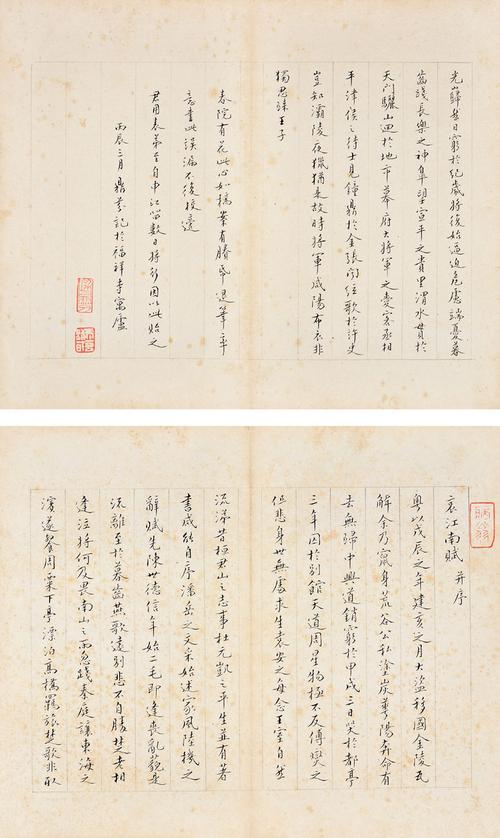 光巋然日窮於紀歲將復始逼迫危慮端憂暮
齒踐長樂之神皋望宣平之貴里渭水貫於
天門驪山迴於地市幕府大將軍之愛客丞相
平津侯之待士見鐘鼎於金張聞絃歌於許史
豈知灞陵夜獵猶是故時將軍咸陽布衣非
獨思歸王子
春院有花此心如槁案有賸帋退筆率
意書此誤漏不復校邊
君用表弟至自中江留數日將行因以此貽之
丙辰三月鼎芬記於福祥寺寓廬
哀江南賦 并序
粵以戊辰之年建亥之月大盜移國金陵瓦
解余乃竄身荒谷公私塗炭華陽奔命有
去無歸中興道銷窮於甲戌三日哭於都亭
三年囚於別館天道周星物極不反傅燮之
但悲身世無處求生袁安之每念王室自然
流涕昔桓君山之志事杜元凱之平生並有著
書咸能自序潘岳之文采始述家風陸機之
辭賦先陳世德信年始二毛即逢喪亂藐是
流離至於暮齒燕歌遠別悲不自勝楚老相
逢泣將何及畏南山之雨忽踐秦庭讓東海之
濱遂餐周粟下亭漂泊高橋羈旅楚歌非取